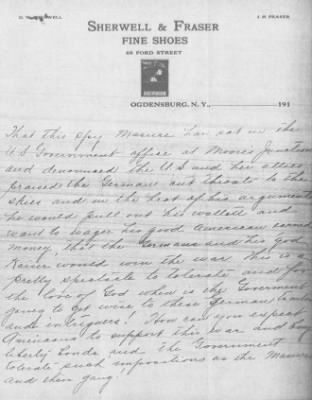 J. H. FRASER
SHERWELL & FRASER
FINE SHOES
FORD STREET
OGDENSBURG, N.Y., 191
That this spy Masure has sat in the
U.S Government office at Moores Junction
and denounced the U.S and her allies
praised the German cut throats to the
skies and in the heat of his arguments
he would pull out his wallet and
want to wager his good American earned
money, that the Germans and his god
Kaiser would win the war this is a
pretty spectacle to tolerate and for
the love of God when is the Goverment
going to get wise to these German
and intriguers! How can you expect
Americans to support this war and buy
liberty bonds and the Government
tolerate such impositions as the Masure
and their gang!